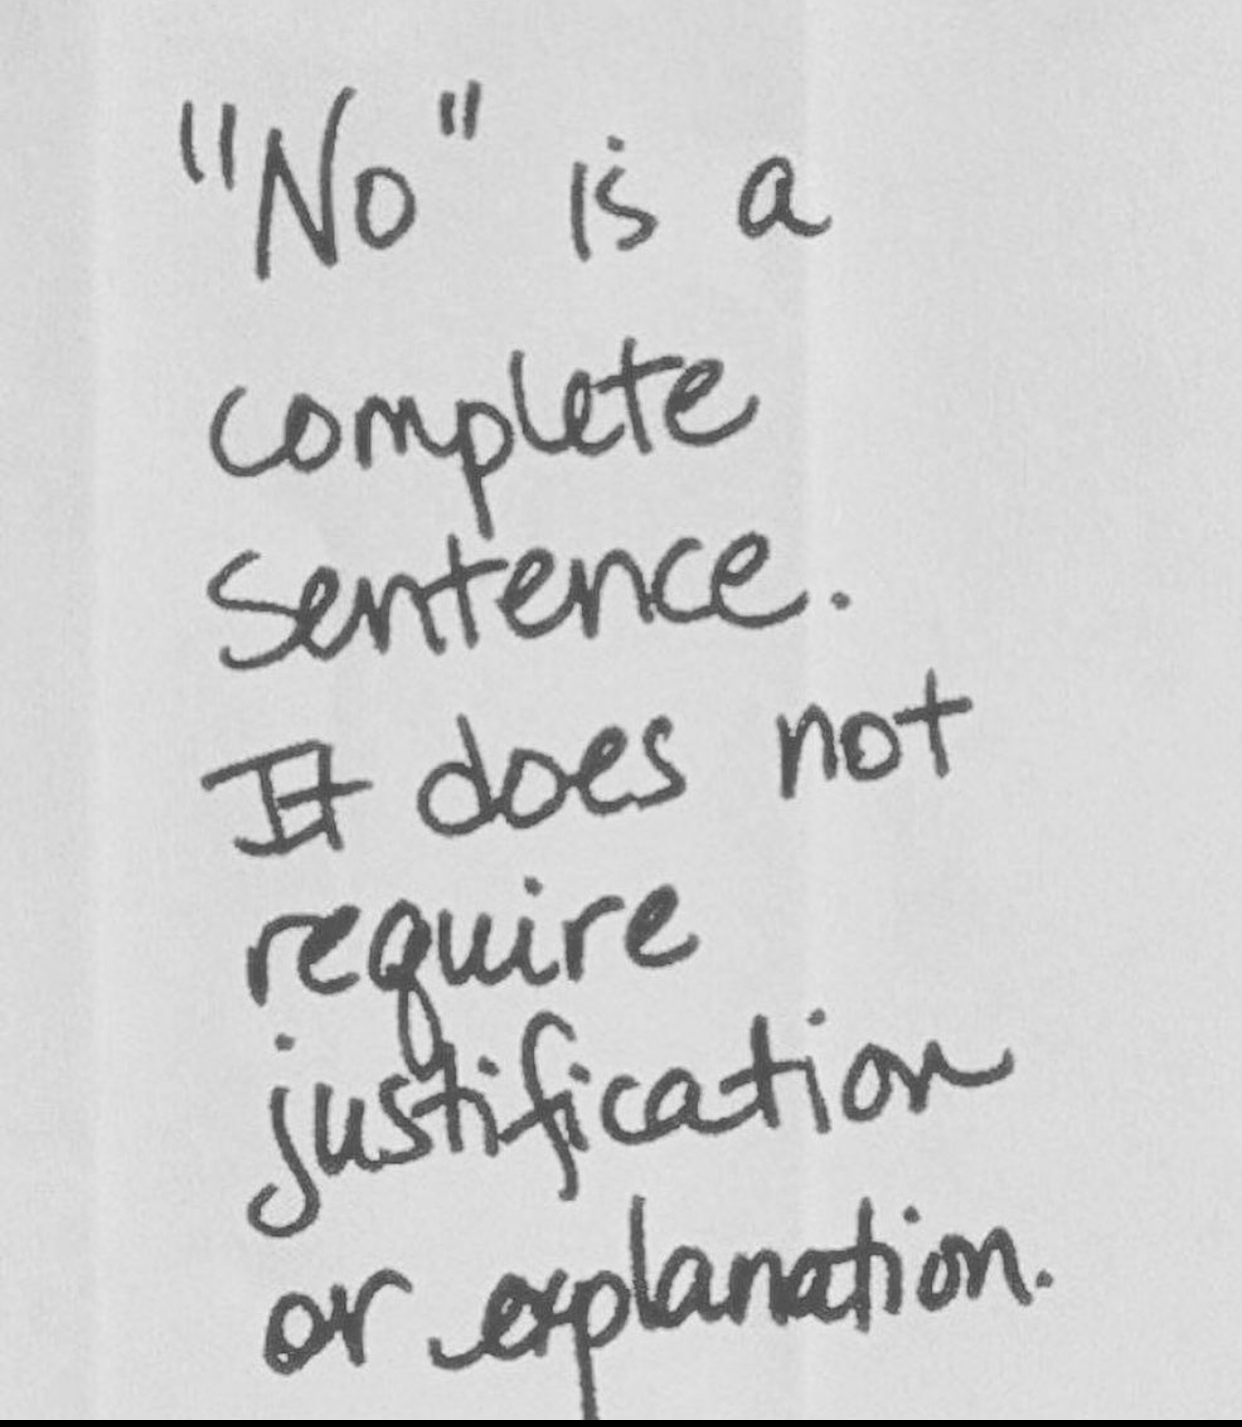 "No" is a
complete
sentence.
It does not
require
justification
or explanation.